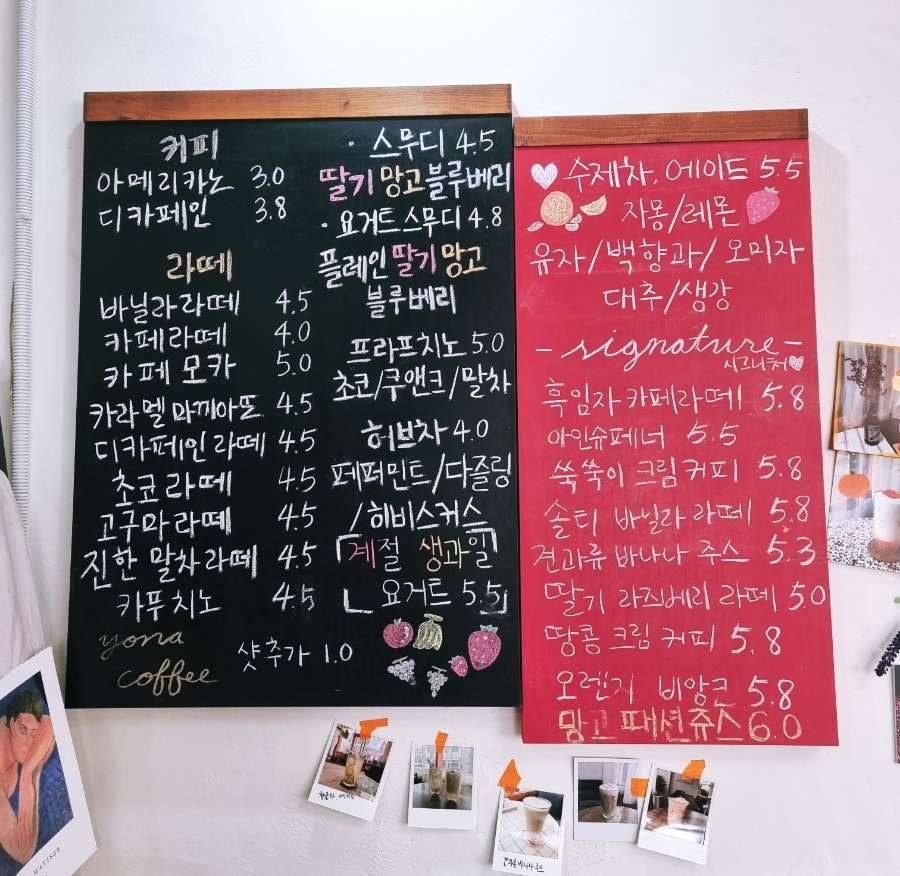 커피
아메리카노 3.0
디카페인 3.8
라떼
바닐라라떼 4.5
카페라떼 4.0
카페모카 5.0
카라멜 마끼아또 4.5
디카페인 라떼 4.5
초코라떼 4.5
고구마라떼 4.5
진한 말차라떼 4.5
카푸치노 4.5
yona
coffee
샷추가 1.0
· 스무디 4.5
딸기 망고 블루베리
· 요거트 스무디 4.8
플레인 딸기 망고
블루베리
프라프치노 5.0
초코/쿠앤크/말차
허브차 4.0
페퍼민트/다즐링
/히비스커스
계절 생과일
요거트 5.5
수제차, 에이드 5.5
자몽/레몬
유자/백향과/오미자
대추/생강
- signature -
시그니처
흑임자 카페라떼 5.8
아인슈페너 5.5
쑥쑥이 크림커피 5.8
솔티 바닐라 라떼 5.8
견과류 바나나 주스 5.3
딸기 라즈베리 라떼 5.0
땅콩 크림 커피 5.8
오렌지 비앙코 5.8
망고 패션쥬스 6.0
에이드
견과류 바나나 주스
MATISSE